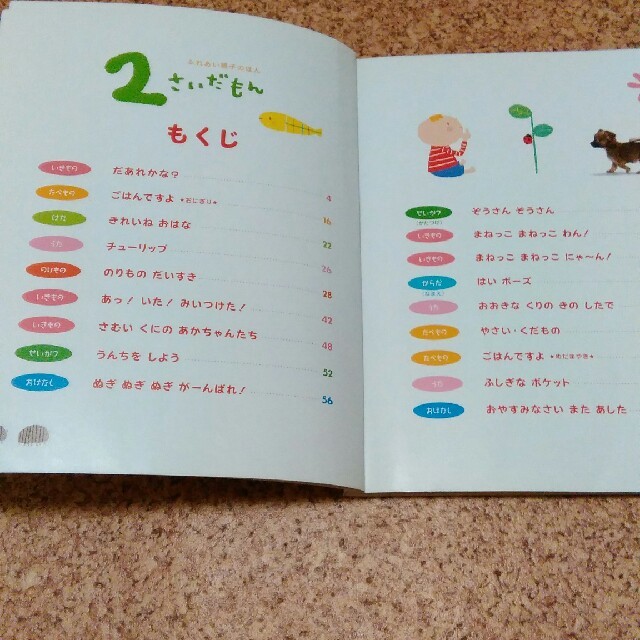 ふれあい親子のほん
2さいだもん
もくじ
いきもの だあれかな? 4
たべもの ごはんですよ ★おにぎり★ 16
はな きれいね おはな 22
うた チューリップ 26
のりもの のりもの だいすき 28
いきもの あっ! いた! みいつけた! 42
いきもの さむい くにの あかちゃんたち 48
せいかつ うんちを しよう 52
おはなし ぬぎ ぬぎ ぬぎ がーんばれ! 56
せいかつ ぞうさん ぞうさん
いきもの まねっこ まねっこ わん!
いきもの まねっこ まねっこ にゃ〜ん!
からだ はい ポーズ
うた おおきな くりの きの したで
たべもの やさい・くだもの
たべもの ごはんですよ
うた ふしぎな ポケット
おはなし おやすみなさい また あした